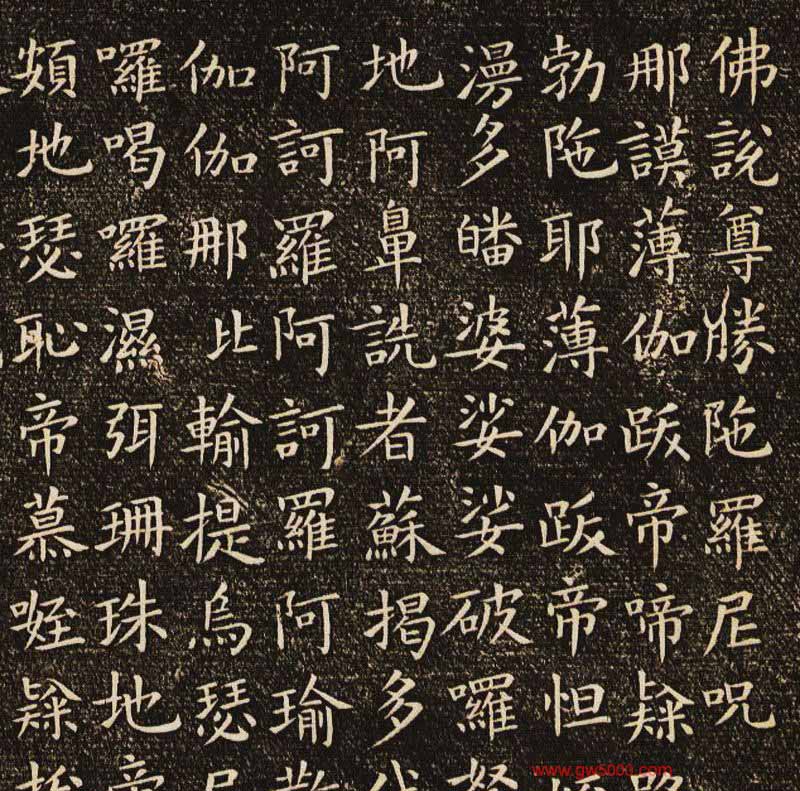 佛說尊勝陁羅尼呪
那謨薄伽跋帝啼隸
勃陁耶薄伽跋帝怛
漫多皤婆娑娑破囉
地阿鼻詵者蘇揭多
阿訶羅阿訶羅阿瑜
伽伽那比輸提烏瑟
囉喝囉濕弭珊珠地
頞地瑟恥帝慕咥隸
www.gw5000.com